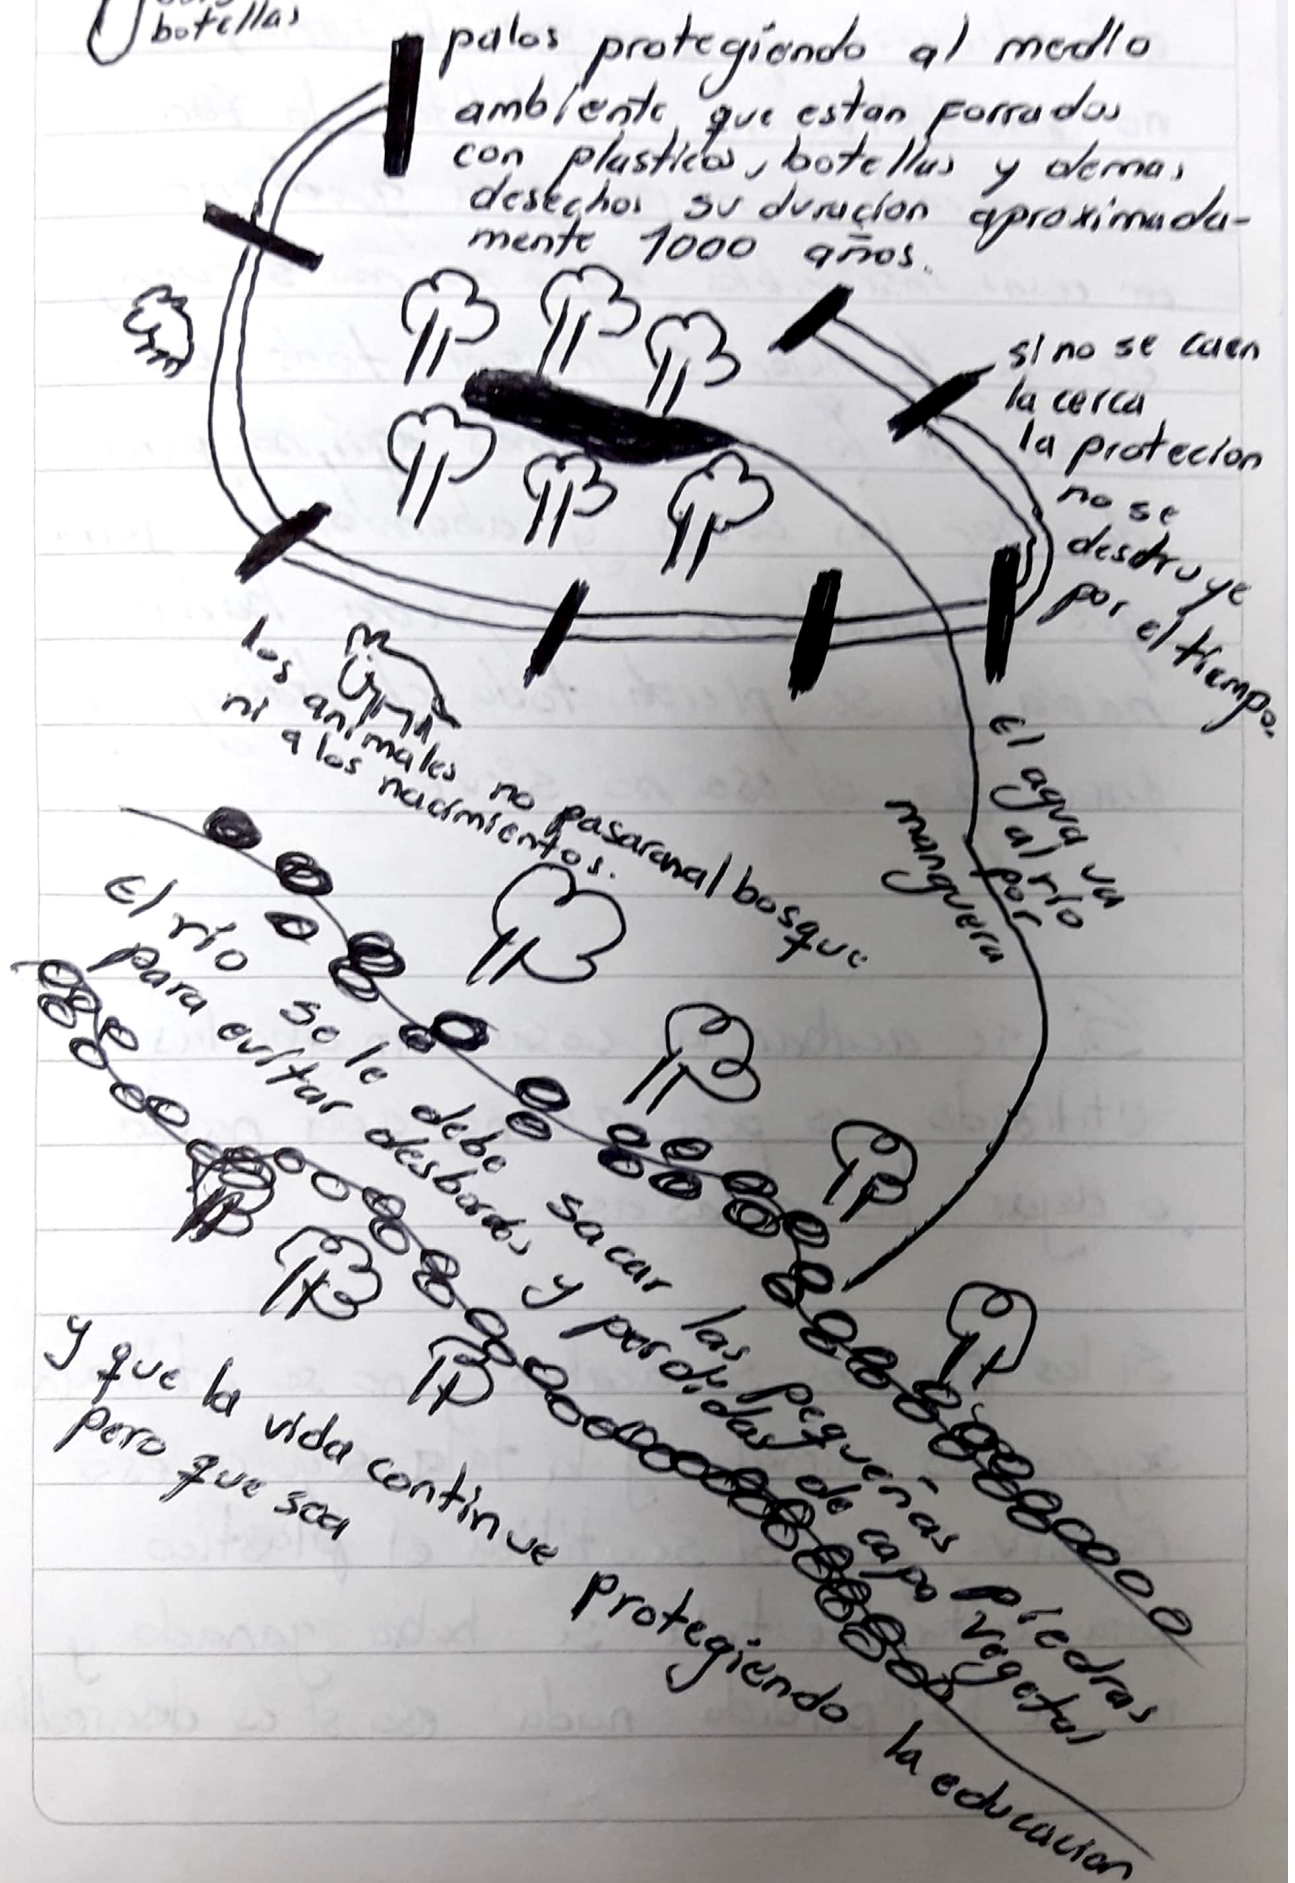 botellas
palos protegiendo al medio
ambiente que estan forrados
con plasticos, botellas y demas
desechos su duracion aproximada-
mente 1000 años.
si no se caen
la cerca
la protecion
no se
destruye
por el tiempo.
los animales no pasaran al bosque
ni a los nacimientos.
El agua va
al río
por
manguera
El río se le debe sacar las pequeñas piedras
para evitar desbordes y perdidas de capa vegetal
y que la vida continue protegiendo la educacion
pero que sea